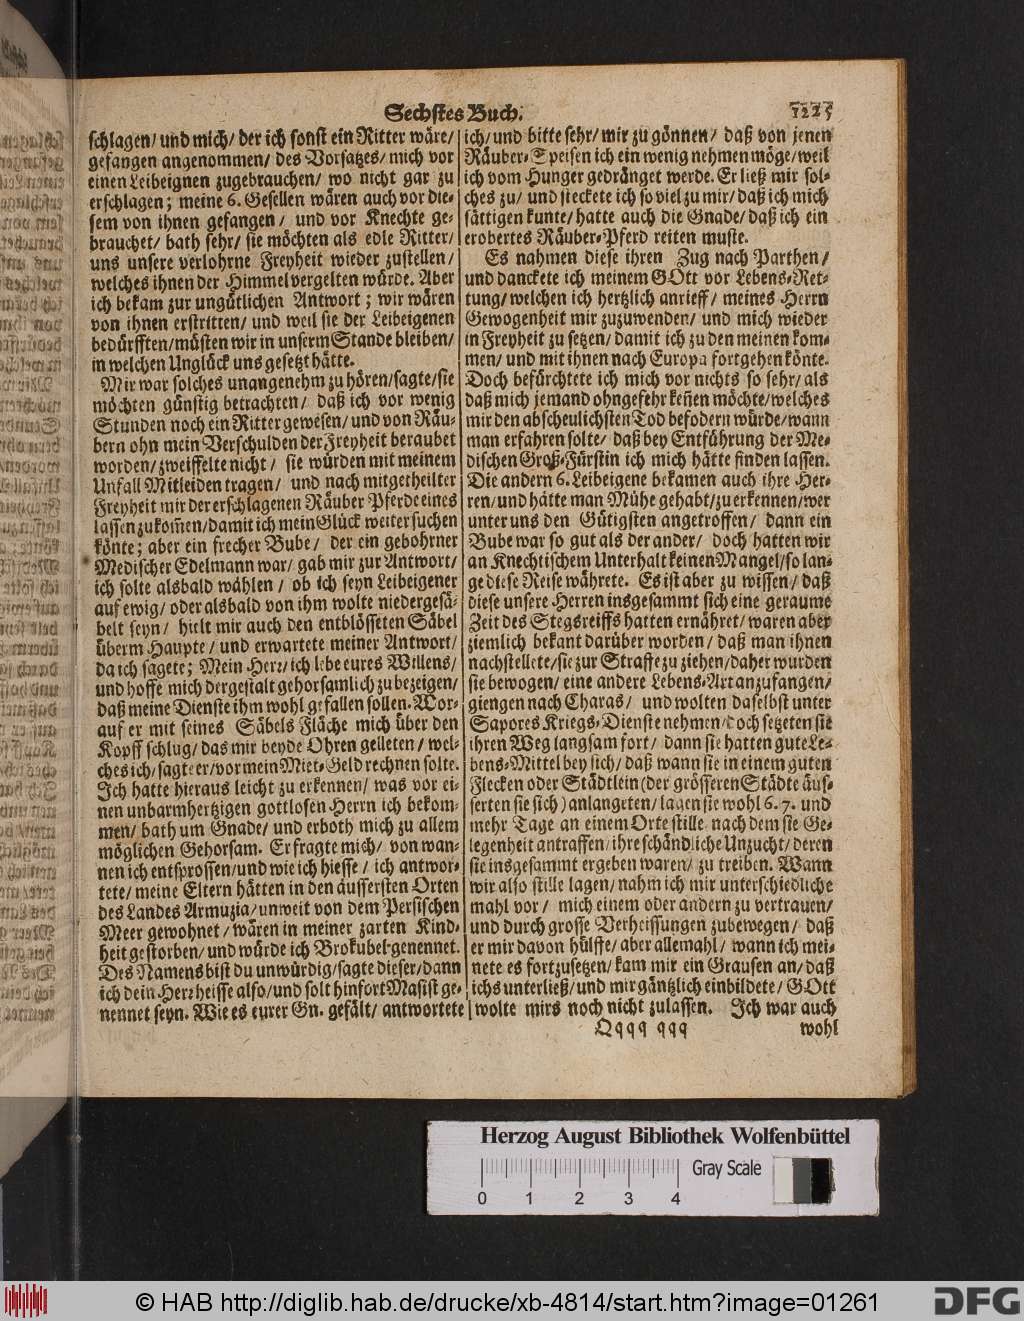 Sechstes Buch. 1225
schlagen/ und mich/ der ich sonst ein Ritter wäre/
gefangen angenommen/ des Vorsatzes/ mich vor
einen Leibeignen zugebrauchen/ wo nicht gar zu
erschlagen; meine 6. Gesellen wären auch vor die-
sem von ihnen gefangen/ und vor Knechte ge-
brauchet/ bath sehr/ sie möchten als edle Ritter/
uns unsere verlohrne Freyheit wieder zustellen/
welches ihnen der Himmel vergelten würde. Aber
ich bekam zur ungütlichen Antwort; wir wären
von ihnen erstritten/ und weil sie der Leibeigenen
bedürfften/ müsten wir in unserm Stande bleiben/
in welchen Unglück uns gesetzt hätte.
Mir war solches unangenehm zu hören/ sagte/ sie
möchten günstig betrachten/ daß ich vor wenig
Stunden noch ein Ritter gewesen/ und von Räu-
bern ohn mein Verschulden der Freyheit beraubet
worden/ zweiffelte nicht/ sie würden mit meinem
Unfall Mitleiden tragen/ und nach mitgetheilter
Freyheit mir der erschlagenen Räuber Pferde eines
lassen zukom̃en/ damit ich mein Glück weiter suchen
könte; aber ein frecher Bube/ der ein gebohrner
Medischer Edelmann war/ gab mir zur Antwort/
ich solte alsbald wählen/ ob ich seyn Leibeigener
auf ewig/ oder alsbald von ihm wolte niedergesä-
belt seyn/ hielt mir auch den entblösseten Säbel
überm Haupte/ und erwartete meiner Antwort/
da ich sagete; Mein Herr/ ich lebe eures Willens/
und hoffe mich dergestalt gehorsamlich zu bezeigen/
daß meine Dienste ihm wohl gefallen sollen. Wor-
auf er mit seines Säbels Fläche mich über den
Kopff schlug/ das mir beyde Ohren gelleten/ wel-
ches ich/ sagte er/ vor mein Miet-Geld rechnen solte.
Ich hatte hieraus leicht zu erkennen/ was vor ei-
nen unbarmhertzigen gottlosen Herrn ich bekom-
men/ bath um Gnade/ und erboth mich zu allem
möglichen Gehorsam. Er fragte mich/ von wan-
nen ich entsprossen/ und wie ich hiesse/ ich antwor-
tete/ meine Eltern hätten in den äussersten Orten
des Landes Armuzia/ unweit von dem Persischen
Meer gewohnet/ wären in meiner zarten Kind-
heit gestorben/ und würde ich Brokubel genennet.
Des Namens bist du unwürdig/ sagte dieser/ dann
ich dein Herr heisse also/ und solt hinfort Masist ge-
nennet seyn. Wie es eurer Gn. gefält/ antwortete
ich/ und bitte sehr/ mir zu gönnen/ daß von jenen
Räuber-Speisen ich ein wenig nehmen möge/ weil
ich vom Hunger gedränget werde. Er ließ mir sol-
ches zu/ und steckete ich so viel zu mir/ daß ich mich
sättigen kunte/ hatte auch die Gnade/ daß ich ein
erobertes Räuber-Pferd reiten muste.
Es nahmen diese ihren Zug nach Parthen/
und danckete ich meinem GOtt vor Lebens-Ret-
tung/ welchen ich hertzlich anrieff/ meines Herrn
Gewogenheit mir zuzuwenden/ und mich wieder
in Freyheit zu setzen/ damit ich zu den meinen kom-
men/ und mit ihnen nach Europa fortgehen könte.
Doch befürchtete ich mich vor nichts so sehr/ als
daß mich jemand ohngefehr keñen möchte/ welches
mir den abscheulichsten Tod befodern würde/ wann
man erfahren solte/ daß bey Entführung der Me-
dischen Groß-Fürstin ich mich hätte finden lassen.
Die andern 6. Leibeigene bekamen auch ihre Her-
ren/ und hätte man Mühe gehabt/ zu erkennen/ wer
unter uns den Gütigsten angetroffen/ dann ein
Bube war so gut als der ander/ doch hatten wir
an Knechtischem Unterhalt keinen Mangel/ so lan-
ge diese Reise währete. Es ist aber zu wissen/ daß
diese unsere Herren insgesammt sich eine geraume
Zeit des Stegsreiffs hatten ernähret/ waren aber
ziemlich bekant darüber worden/ daß man ihnen
nachstellete/ sie zur Straffe zu ziehen/ daher wurden
sie bewogen/ eine andere Lebens-Art anzufangen/
giengen nach Charas/ und wolten daselbst unter
Sapores Kriegs-Dienste nehmen/ doch setzeten sie
ihren Weg langsam fort/ dann sie hatten gute Le-
bens-Mittel bey sich/ daß wann sie in einem guten
Flecken oder Städtlein (der grösseren Städte äus-
serten sie sich) anlangeten/ lagen sie wohl 6. 7. und
mehr Tage an einem Orte stille nach dem sie Ge-
legenheit antraffen/ ihre schändliche Unzucht/ deren
sie insgesammt ergeben waren/ zu treiben. Wann
wir also stille lagen/ nahm ich mir unterschiedliche
mahl vor/ mich einem oder andern zu vertrauen/
und durch grosse Verheissungen zubewegen/ daß
er mir davon hülffe/ aber allemahl/ wann ich mei-
nete es fortzusetzen/ kam mir ein Grausen an/ daß
ichs unterließ/ und mir gäntzlich einbildete/ GOtt
wolte mirs noch nicht zulassen. Ich war auch
Qqqq qqq wohl
Herzog August Bibliothek Wolfenbüttel
Gray Scale
0 1 2 3 4
© HAB http://diglib.hab.de/drucke/xb-4814/start.htm?image=01261
DFG